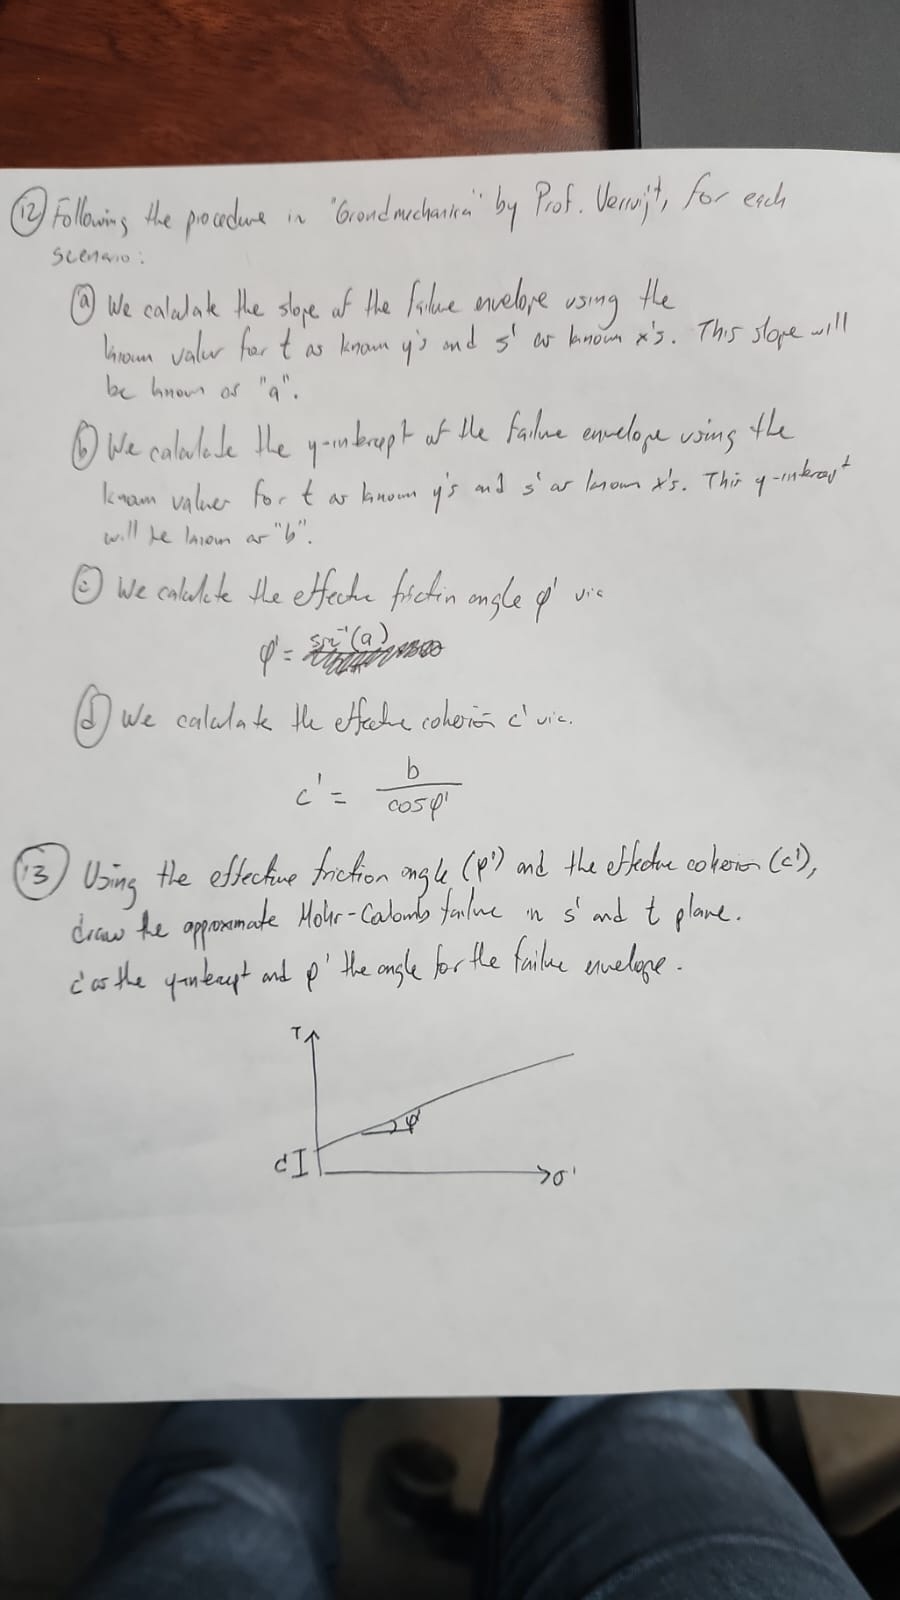 12 Following the procedure in "Grondmechanica" by Prof. Verruijt, for each
scenario:
a We calculate the slope of the failure envelope using the
known values for t as known y's and s' as known x's. This slope will
be known as "a".
b We calculate the y-intercept of the failure envelope using the
known values for t as known y's and s' as known x's. This y-intercept
will be known as "b".
c We calculate the effective friction angle φ' via
φ' = sin⁻¹(a)
d We calculate the effective cohesion c' via.
c' = b / cosφ'
13 Using the effective friction angle (φ') and the effective cohesion (c'),
draw the approximate Mohr-Coulomb failure in s' and t plane.
c' as the y-intercept and φ' the angle for the failure envelope.
τ
φ'
c
σ'